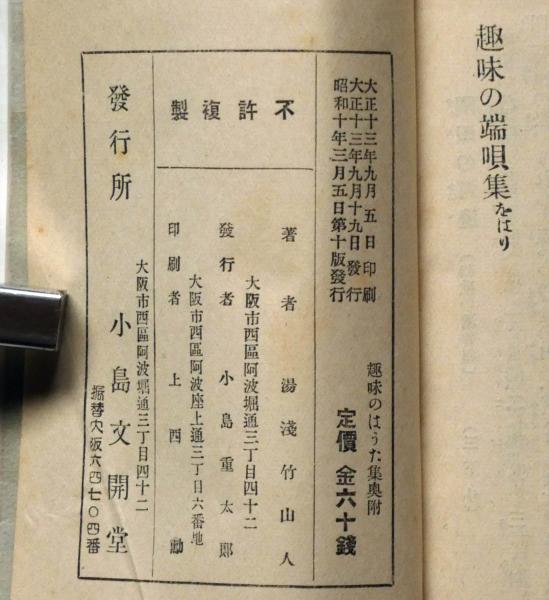 趣味の端唄集をはり
大正十三年九月五日印刷
大正十三年九月十九日發行
昭和十年三月五日第十版發行
趣味のはうた集奧附
定價金六十錢
不許複製
著者 湯淺竹山人
大阪市西區阿波堀通三丁目四十二
發行者 小島重太郎
大阪市西區阿波座上通三丁目六番地
印刷者 上西勳
大阪市西區阿波堀通三丁目四十二
發行所 小島文開堂
振替大阪六四七〇四番